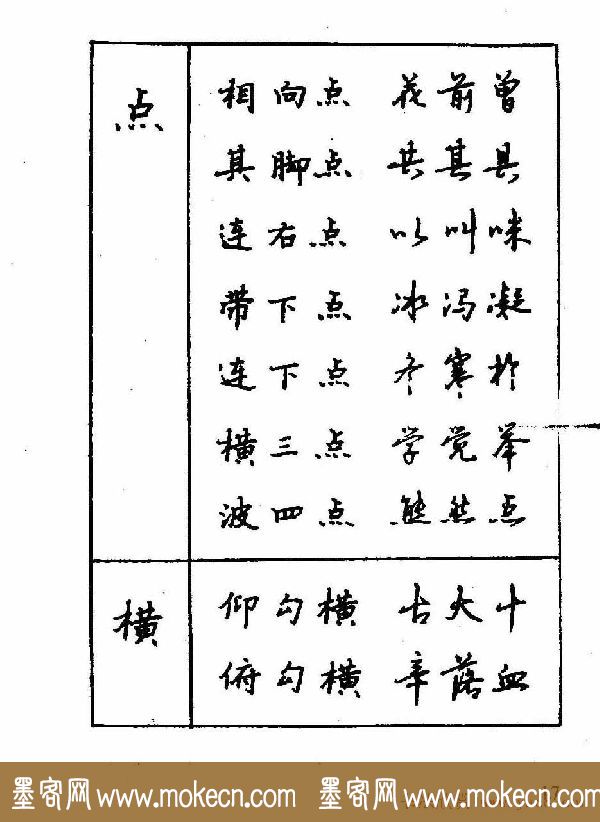 点
相向点 茂前曾
其脚点 共其具
连右点 以叫咪
带下点 冰冯凝
连下点 冬寒於
横三点 学觉举
波四点 熊然点
横
仰勾横 古大十
俯勾横 辛落血
墨客网 www.mokecn.com 墨客网 www.mokecn.com